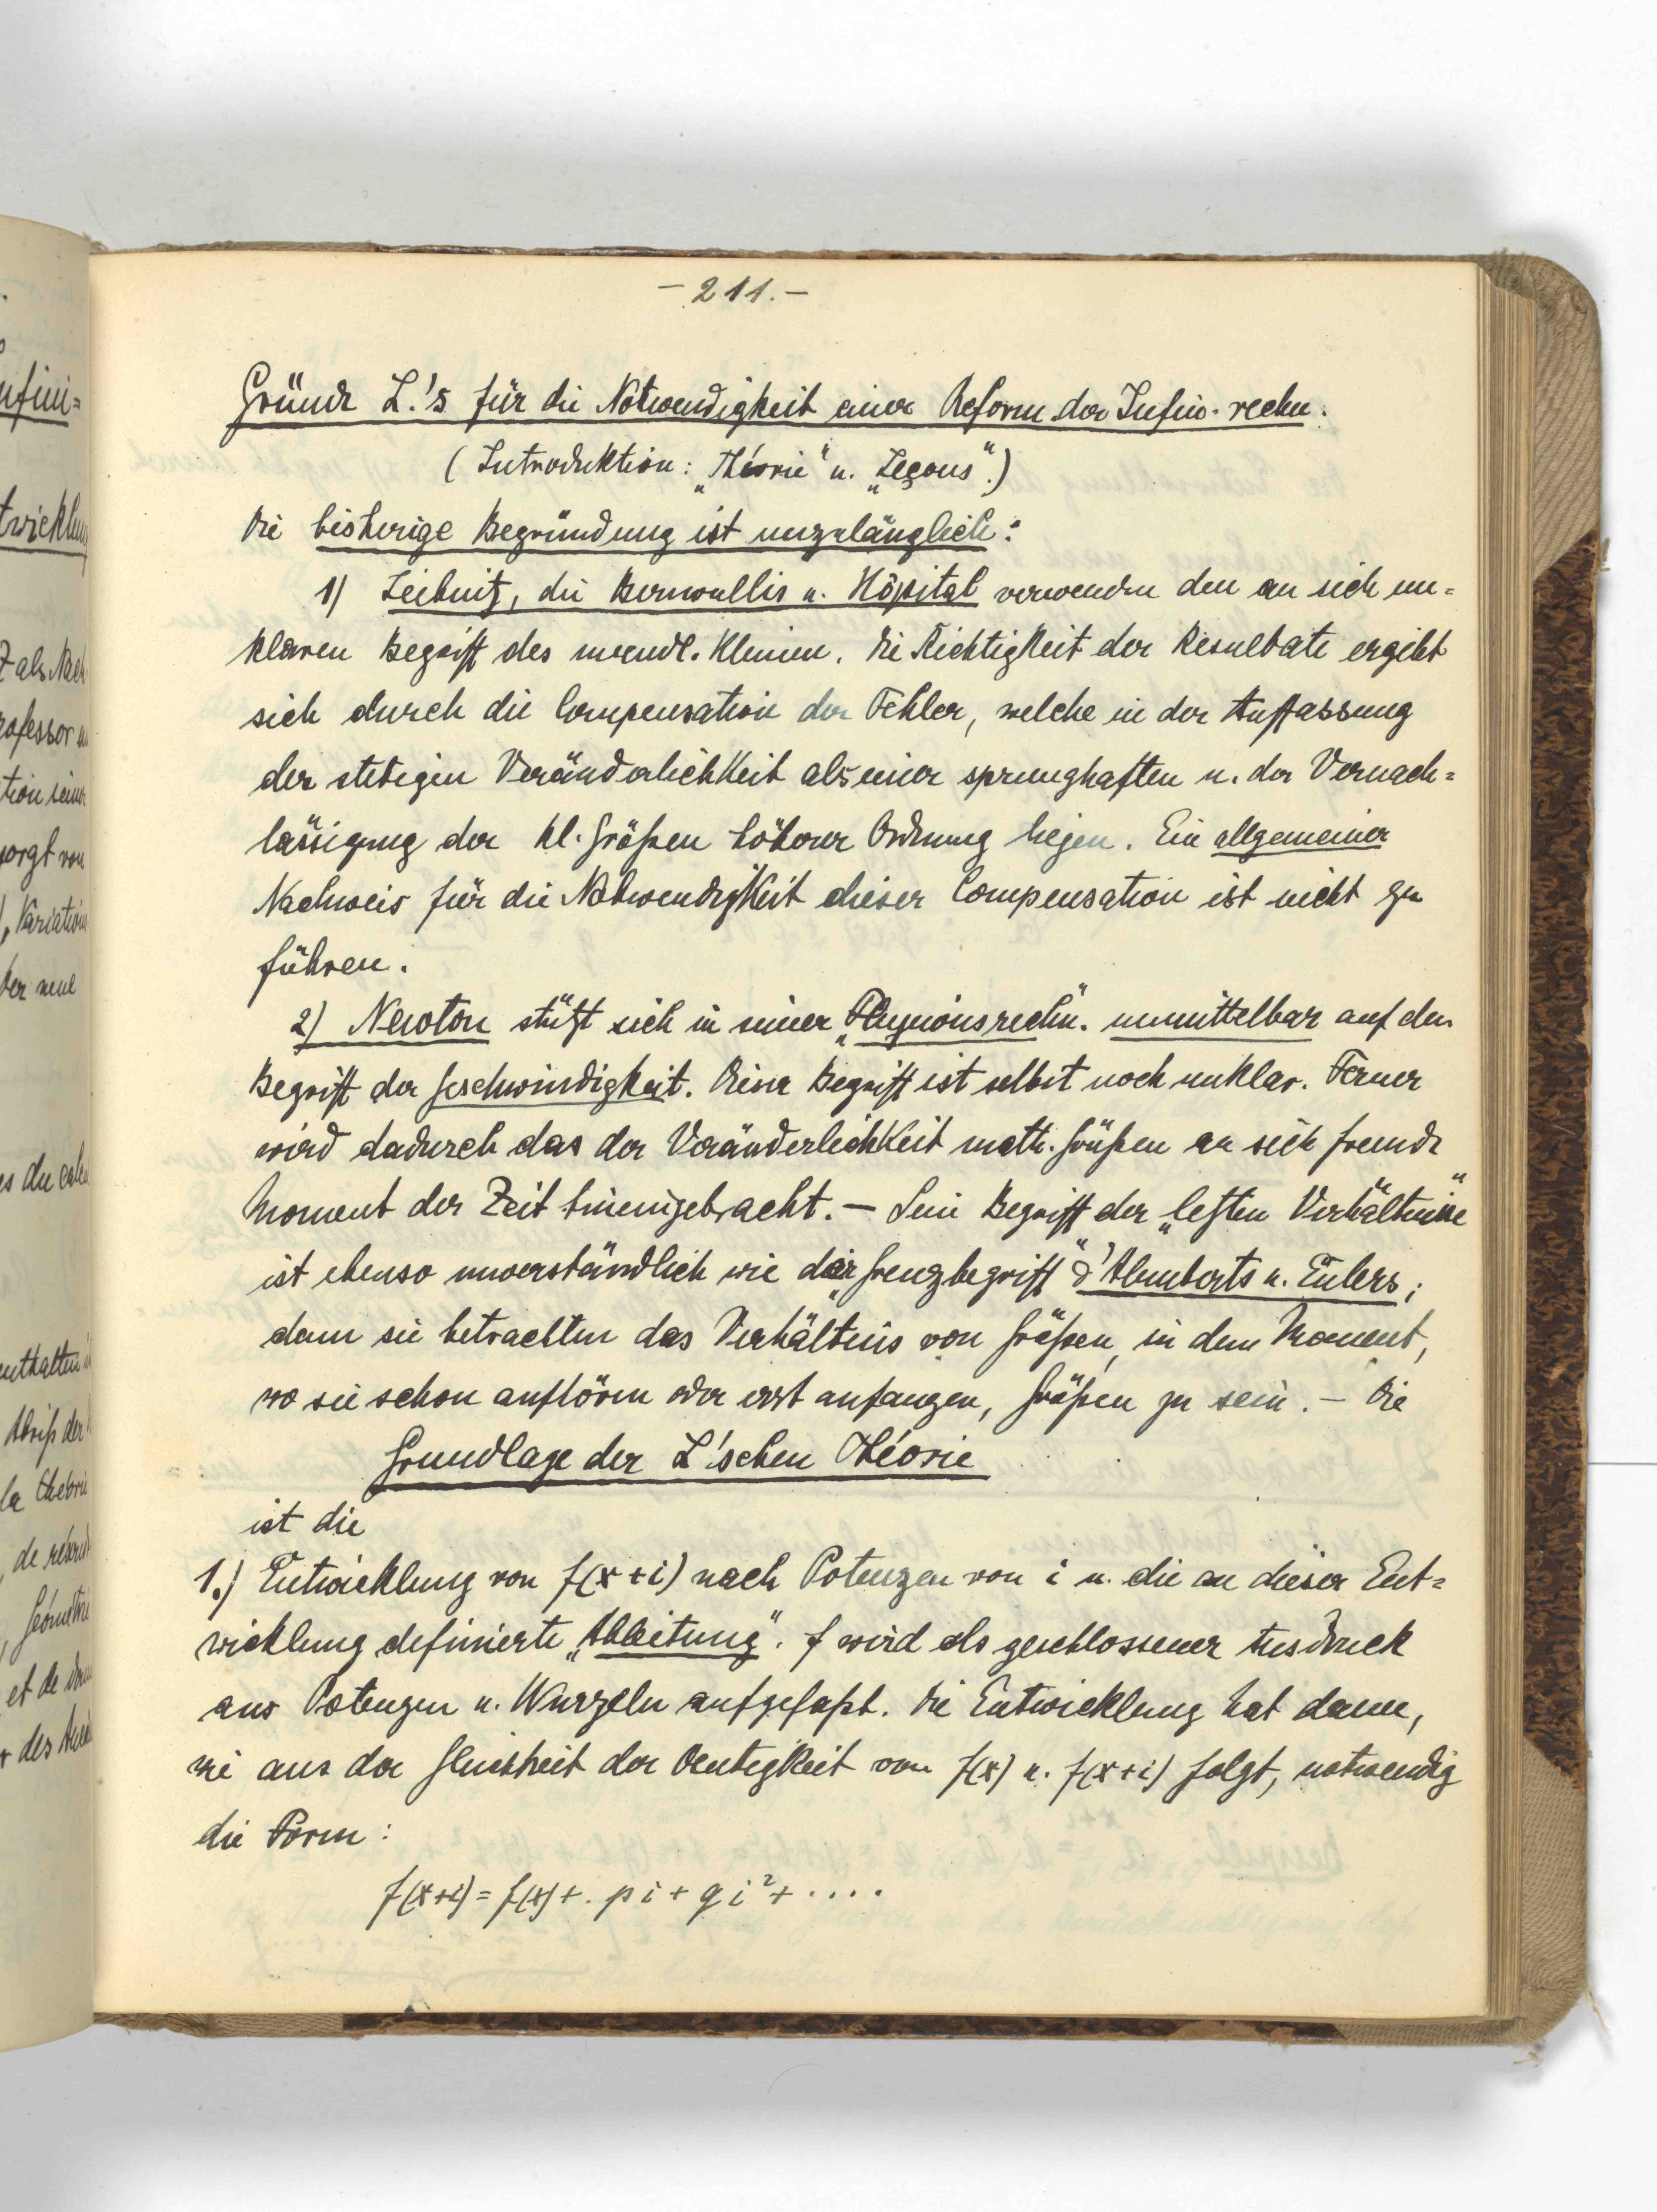 nfini=
twicklun
Z als Nach
rofessor
tion seiner
sorgt von
Variation
der neue
es du calcu
enthalten
Abriß der
la Théorie
de résoud
Géométrie
et de
des
- 211. -
Gründe L.'s für die Notwendigkeit einer Reform der Infin-rechn.
(Introduktion: „Théorie" u. „Leçons".)
Die bisherige Begründung ist unzulänglich:
1) Leibnitz, die Bernoullis u. Hôpital verwenden den an sich un=
klaren Begriff des unendl. Kleinen. Die Richtigkeit der Resultate ergibt
sich durch die Compensation der Fehler, welche in der Auffassung
der stetigen Veränderlichkeit als einer sprunghaften u. der Vernach=
lässigung der kl. Größen höherer Ordnung liegen. Ein allgemeiner
Nachweis für die Notwendigkeit dieser Compensation ist nicht zu
führen.
2) Newton stützt sich in seiner „Fluxionsrechn." unmittelbar auf den
Begriff der Geschwindigkeit. Dieser Begriff ist selbst noch unklar. Ferner
wird dadurch das der Veränderlichkeit math. Größen an sich fremde
Moment der Zeit hineingebracht. — Sein Begriff der „letzten Verhältnisse"
ist ebenso unverständlich wie der „Grenzbegriff" d'Alemberts u. Eulers;
denn sie betrachten das Verhältnis von Größen, in dem Moment,
wo sie schon aufhören oder erst anfangen, Größen zu sein. — Die
Grundlage der L'schen Théorie
ist die
1.) Entwicklung von f(x+i) nach Potenzen von i u. die an dieser Ent=
wicklung definierte „Ableitung". f wird als geschlossener Ausdruck
aus Potenzen u. Wurzeln aufgefaßt. Die Entwicklung hat dann,
wie aus der Gleichheit der Deutigkeit von f(x) u. f(x+i) folgt, notwendig
die Form:
f(x+i) = f(x) + . pi + qi² + ....